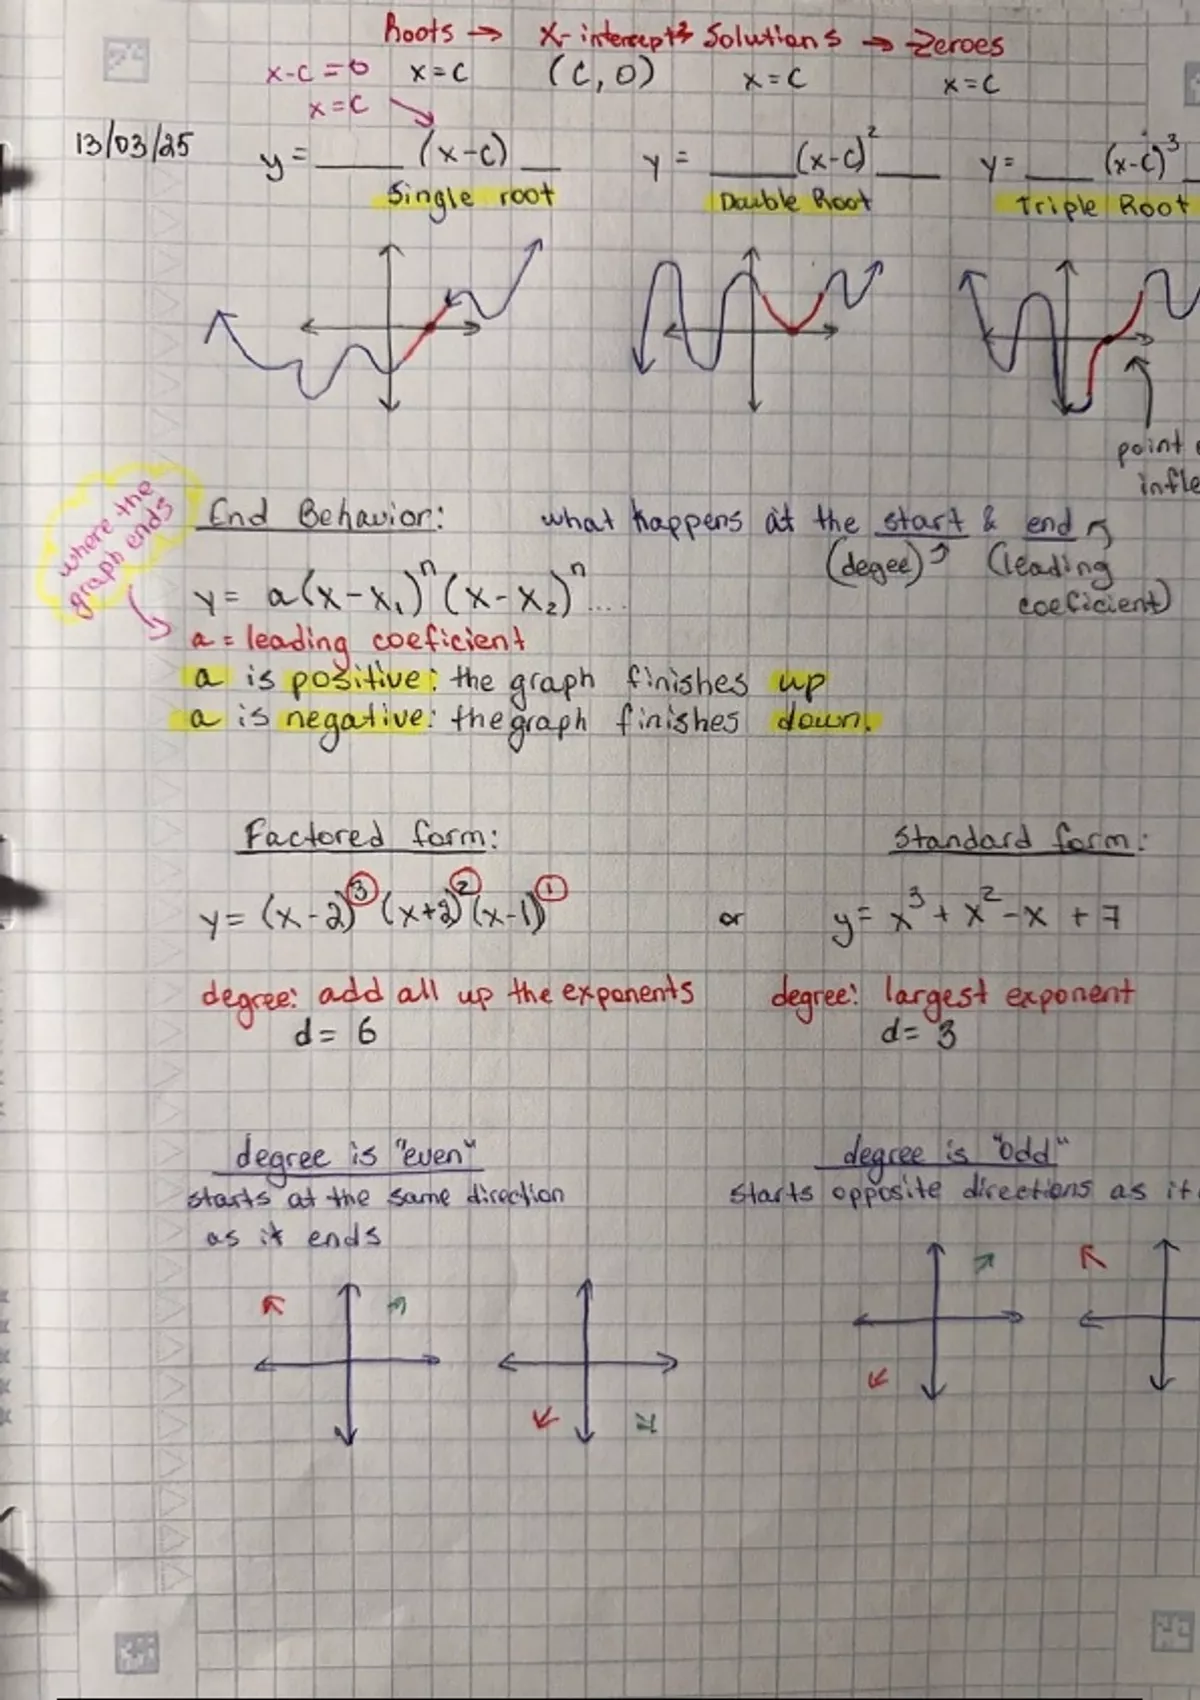 Roots → x-intercepts Solutions → Zeroes
x-c=0 x=c (c,0) x=c x=c
x=c
13/03/25
y=____(x-c)__ y=____(x-c)²___ y=___(x-c)³_
Single root Double Root Triple Root
point
infle
where the
graph ends
End Behavior: what happens at the start & end
(degee) (leading
coeficient)
y= a(x-x₁)ⁿ(x-x₂)ⁿ....
a = leading coeficient
a is positive: the graph finishes up
a is negative: the graph finishes down.
Factored form: Standard form:
y= (x-2)³(x+3)²(x-1)¹ or y= x³+x²-x+7
degree: add all up the exponents degree: largest exponent
d= 6 d= 3
degree is "even" degree is "odd"
starts at the same direction starts opposite directions as it
as it ends